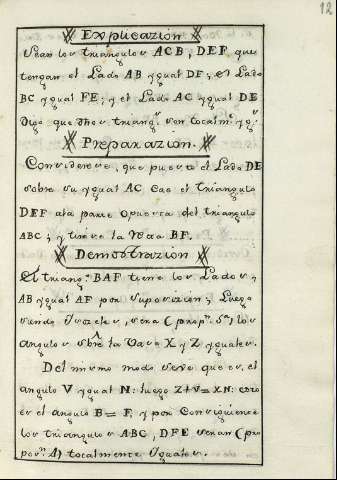 12
Explicazion
Sean los triangulos ACB, DEF que
tengan el Lado AB ygual DF; el Lado
BC ygual FE; y el Lado AC ygual DE
Digo que dhos triang.s son totalm.te yg.s
Preparazion.
Considerese, que puesto el Lado DE
sobre su ygual AC cae el triangulo
DEF ala parte opuesta del triangulo
ABC; y tirese la recta BF.
Demostrazion
El triang.o BAF tiene los Lados,
AB ygual AF por suposizion; Luego
siendo Isozeles, sera (prop.n 5.a) los
angulos sobre la Vasa X y Z yguales.
Del mismo modo seve que es el
angulo V ygual N: luego Z+V=XN: esto
es el angulo B = F, y por Consiguiente
los triangulos ABC, DFE seran (pro
por.n 4) totalmente Yguales.